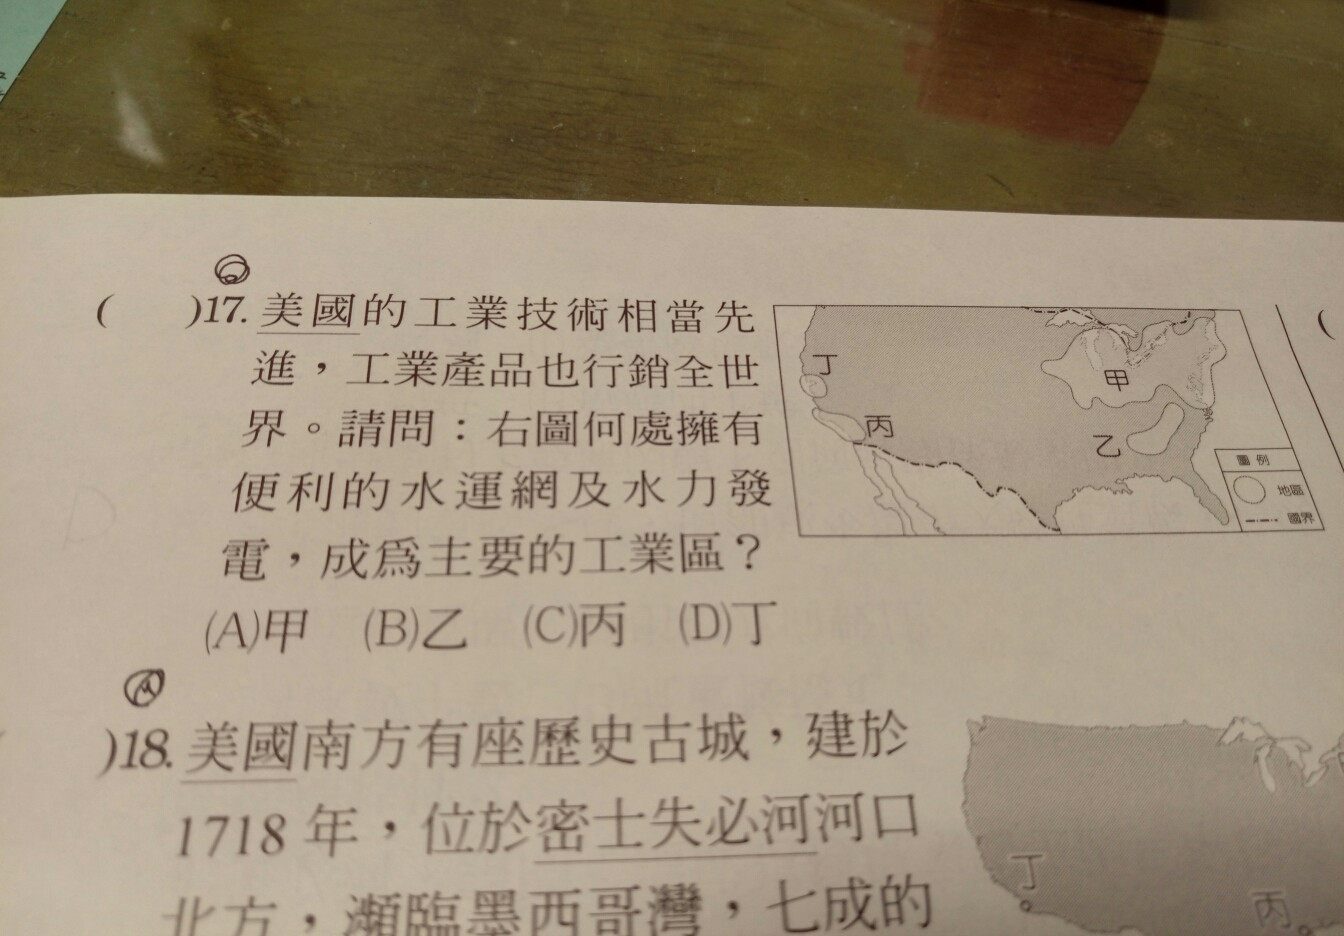 ( )17. 美國的工業技術相當先
進，工業產品也行銷全世
界。請問：右圖何處擁有
便利的水運網及水力發
電，成為主要的工業區？
(A)甲 (B)乙 (C)丙 (D)丁
丁
甲
丙
乙
圖例
地區
國界
(
D
A
)18. 美國南方有座歷史古城，建於
1718年，位於密士失必河河口
北方，瀕臨墨西哥灣，七成的
丁
丙